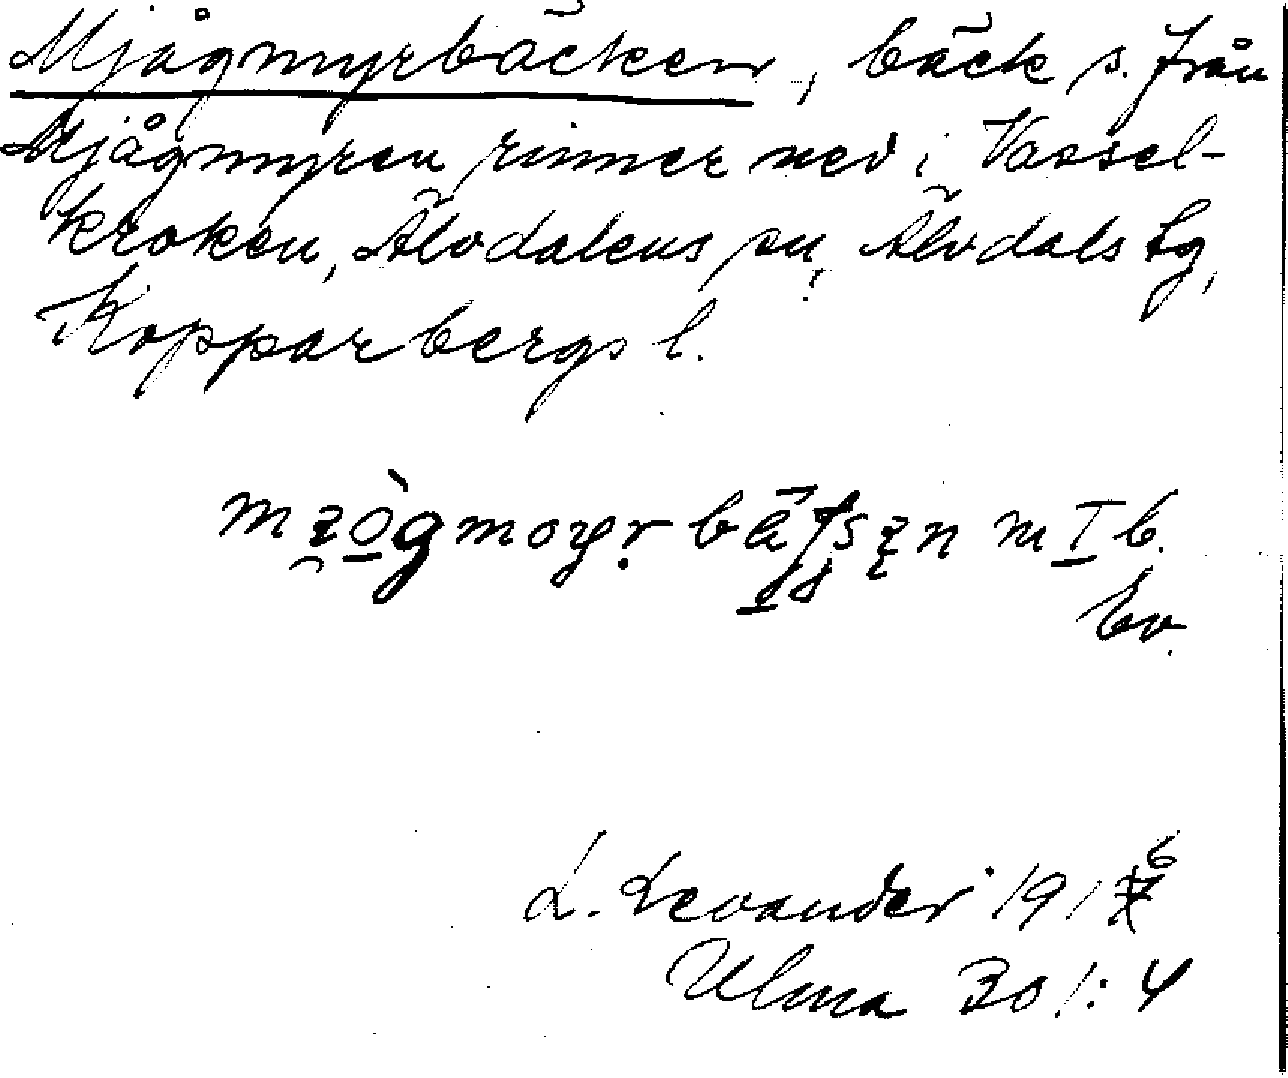 Mjågmyrbäcken, bäck s. från
Mjågmyren rinner ned i Vassel-
kroken, Älvdalens sn, Älvdals tg,
Kopparbergs l.
L. Levander 1916
Ulma 301:4